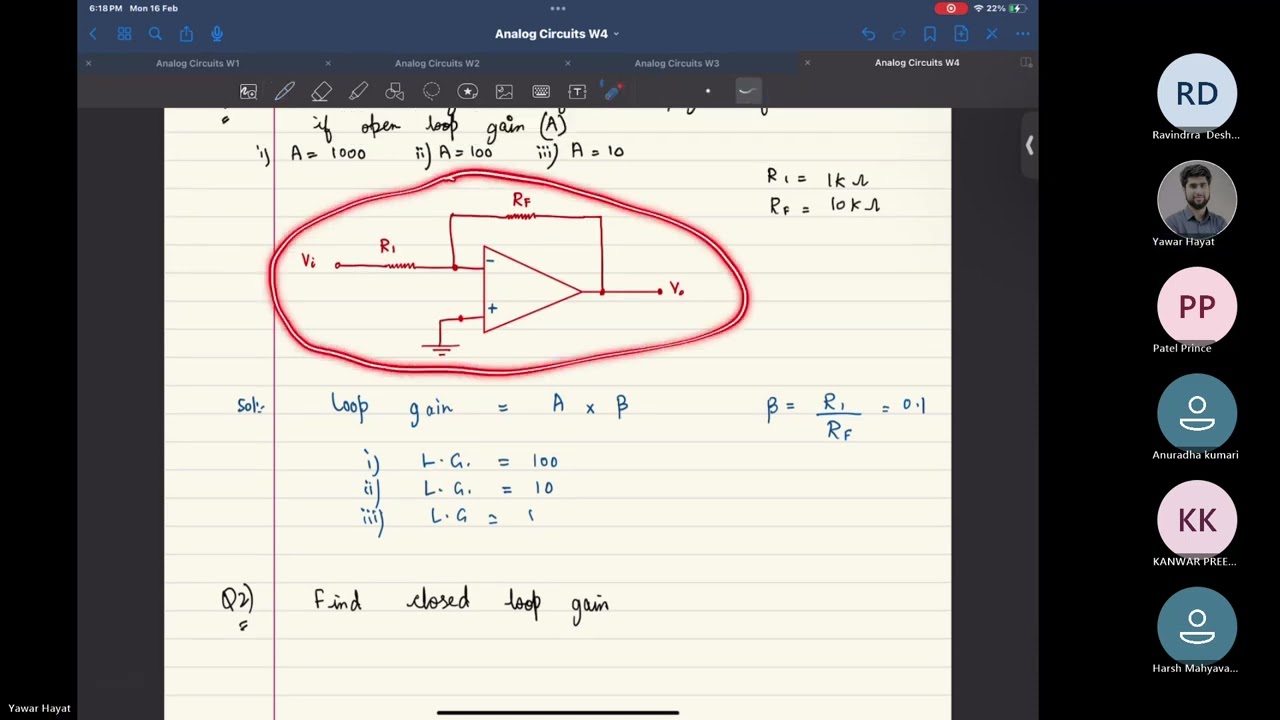 6:18 PM Mon 16 Feb
22%
Analog Circuits W4
Analog Circuits W1
Analog Circuits W2
Analog Circuits W3
Analog Circuits W4
if open loop gain (A)
i) A = 1000 ii) A = 100 iii) A = 10
R1 = 1K Ω
RF = 10K Ω
RF
R1
Vi
-
+
Vo
Sol:- Loop gain = A x β
β = R1 / RF = 0.1
i) L.G. = 100
ii) L.G. = 10
iii) L.G = 1
Q2) Find closed loop gain
RD
Ravindrra Desh...
Yawar Hayat
PP
Patel Prince
Anuradha kumari
KK
KANWAR PREE...
Harsh Mahyava...
Yawar Hayat